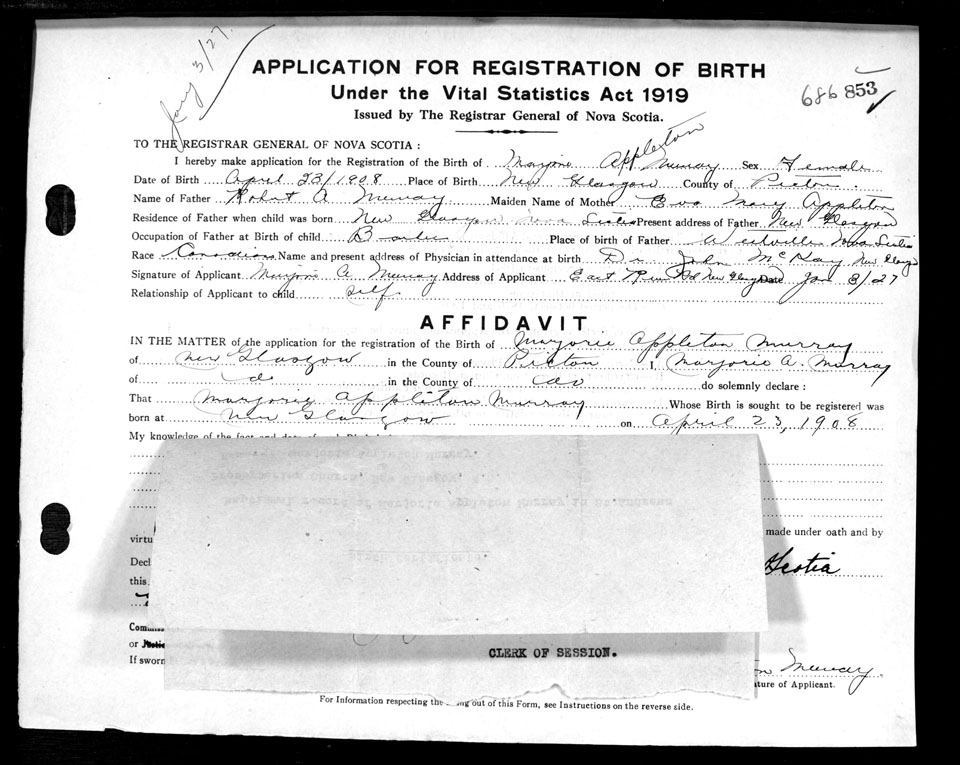 Jany 3/27.
APPLICATION FOR REGISTRATION OF BIRTH
Under the Vital Statistics Act 1919
686 853
Issued by The Registrar General of Nova Scotia.
TO THE REGISTRAR GENERAL OF NOVA SCOTIA :
Appleton
I hereby make application for the Registration of the Birth of Marjorie Murray Sex Female
Date of Birth April 23/1908 Place of Birth New Glasgow County of Pictou.
Name of Father Robert A Murray Maiden Name of Mother Eva Mary Appleton
Residence of Father when child was born New Glasgow Nova Scotia Present address of Father New Glasgow
Occupation of Father at Birth of child Place of birth of Father Westville Nova Scotia
Race Canadian Name and present address of Physician in attendance at birth Dr. John McKay New Glasgow
Signature of Applicant Marjorie A. Murray Address of Applicant East River Rd New Glasgow Date Jan 3/27
Relationship of Applicant to child self.
AFFIDAVIT
IN THE MATTER of the application for the registration of the Birth of Marjorie Appleton Murray
of New Glasgow in the County of Pictou I, Marjorie A. Murray
of do in the County of do do solemnly declare :
That Marjorie Appleton Murray Whose Birth is sought to be registered was
born at New Glasgow on April 23, 1908
My knowledge of the fact and date of
made under oath and by
virtu
Decl Scotia
this
Commis
or Justic
CLERK OF SESSION.
If sworn Murray
ature of Applicant.
For Information respecting the ing out of this Form, see Instructions on the reverse side.